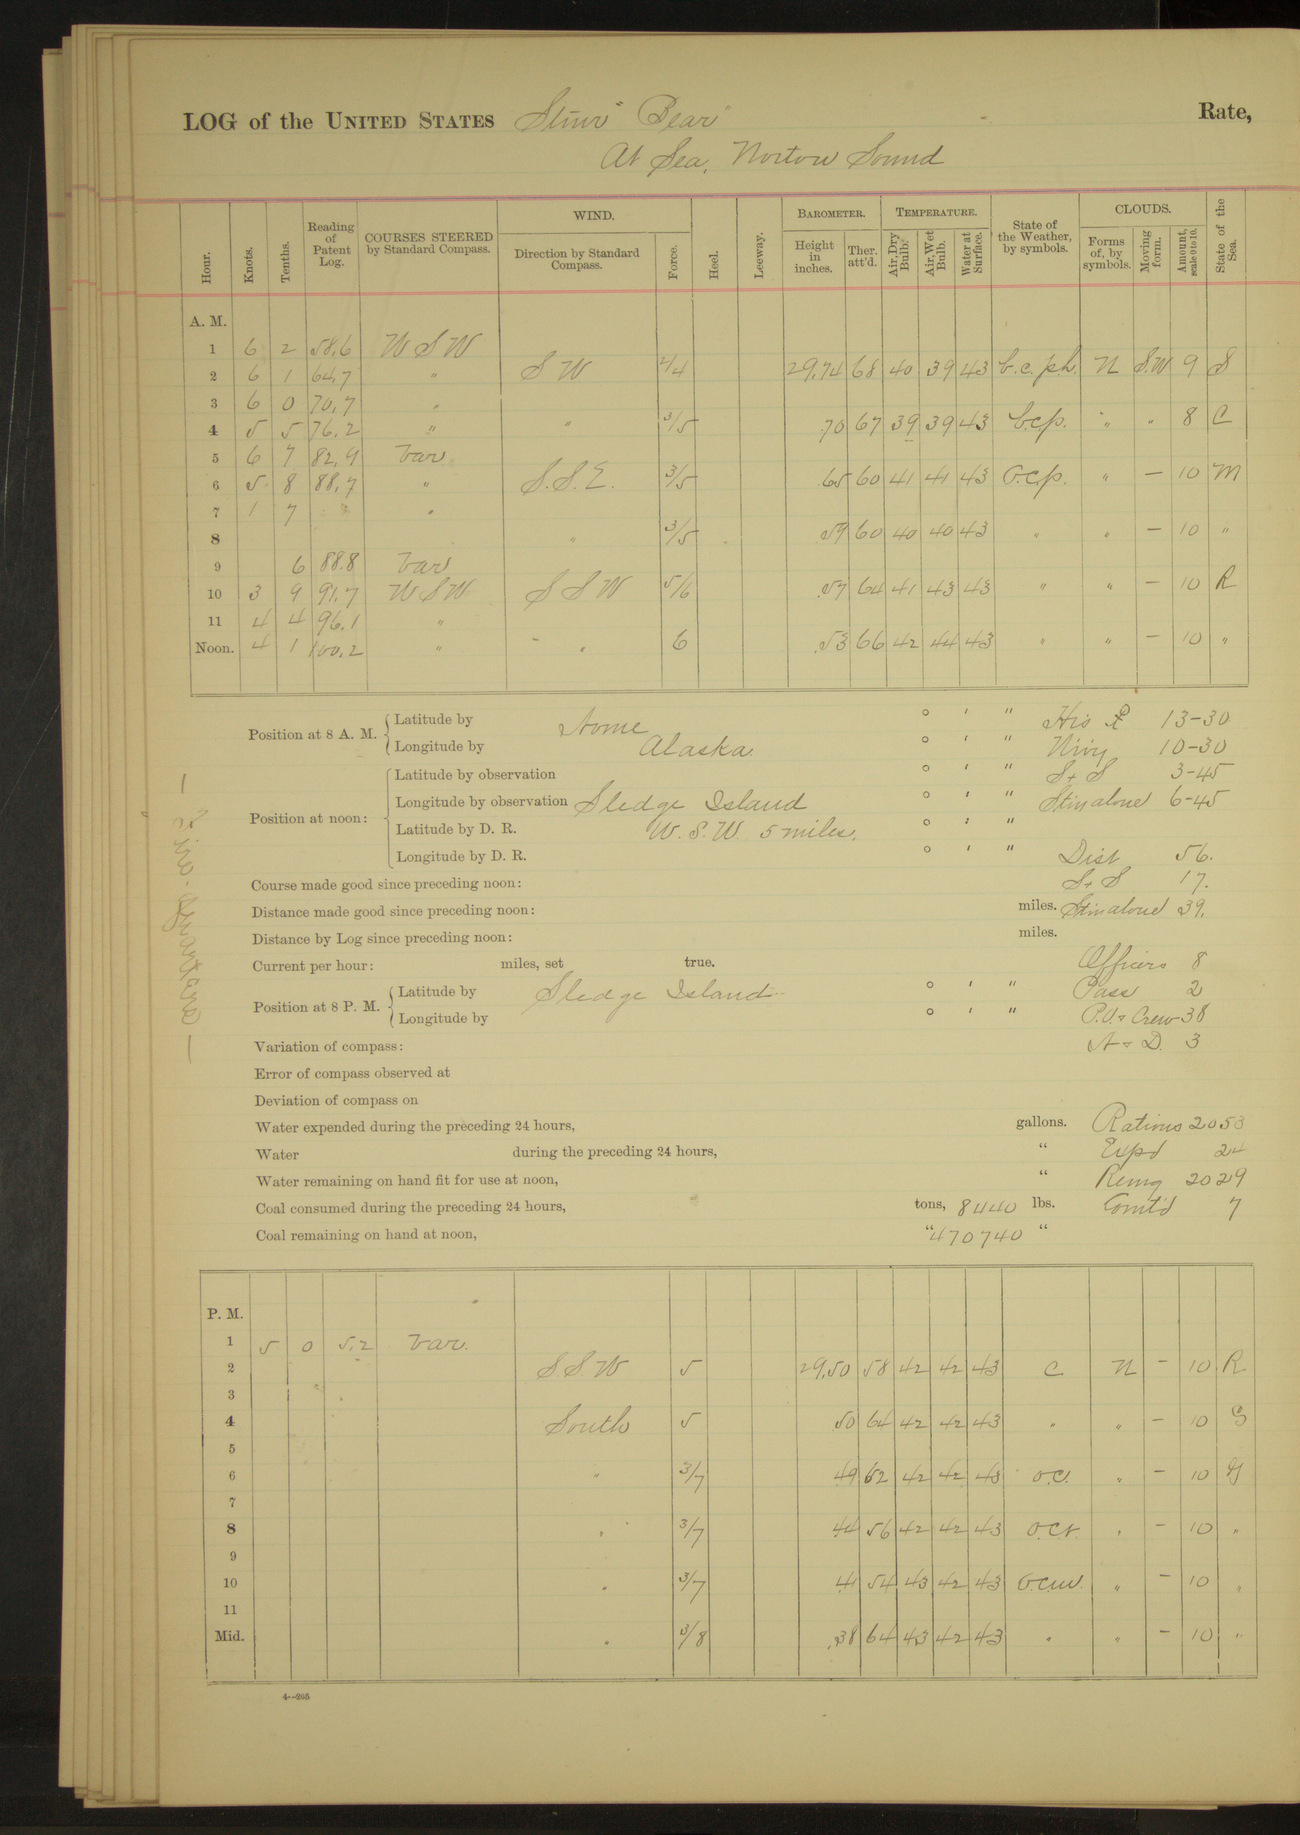 LOG of the UNITED STATES Stmr "Bear" Rate,
At Sea, Norton Sound
Hour. Knots. Tenths. Reading of Patent Log. COURSES STEERED by Standard Compass. WIND. Direction by Standard Compass. Force. Heel. Leeway. BAROMETER. Height in inches. Ther. att'd. TEMPERATURE. Air, Dry Bulb. Air, Wet Bulb. Water at Surface. State of the Weather, by symbols. CLOUDS. Forms of, by symbols. Moving form. Amount, scale 0 to 10. State of the Sea.
A. M.
1 6 2 58.6 W S W
2 6 1 64.7 " S W 2/4 29.74 68 40 39 43 b.c.p.h. N S.W 9 S
3 6 0 70.7 "
4 5 5 76.2 " " 3/5 .70 67 39 39 43 b.c.p. " " 8 C
5 6 7 82.9 Var
6 5 8 88.7 " S.S.E. 3/5 .65 60 41 41 43 O.c.p. " — 10 M
7 1 7 "
8 " 3/5 .59 60 40 40 43 " " — 10 "
9 6 88.8 Var
10 3 9 91.7 W S W S S W 5/6 .57 64 41 43 43 " " — 10 R
11 4 4 96.1 "
Noon. 4 1 100.2 " " 6 .53 66 42 44 43 " " — 10 "
Position at 8 A. M. Latitude by Nome ° ' " 13-30
Longitude by Alaska. ° ' " 10-30
Position at noon: Latitude by observation ° ' " S + S 3-45
Longitude by observation Sledge Island ° ' " Stm alone 6-45
Latitude by D. R. W. S. W. 5 miles. ° ' "
Longitude by D. R. ° ' " Dist 56.
Course made good since preceding noon: S + S 17.
Distance made good since preceding noon: miles. Stm alone 39.
Distance by Log since preceding noon: miles.
Current per hour: miles, set true. Officers 8
Position at 8 P. M. Latitude by Sledge Island ° ' " Pass 2
Longitude by ° ' " P.O. & Crew 38
Variation of compass: A & D. 3
Error of compass observed at
Deviation of compass on
Water expended during the preceding 24 hours, gallons. Rations 2053
Water during the preceding 24 hours, " Expd 24
Water remaining on hand fit for use at noon, " Remg 2029
Coal consumed during the preceding 24 hours, tons, 8440 lbs. Comt'd 7
Coal remaining on hand at noon, " 470740 "
P. M.
1 5 0 5.2 Var.
2 S.S.W 5 29.50 58 42 42 43 C N — 10 R
3
4 South 5 50 64 42 42 43 " " — 10 G
5
6 " 3/7 49 62 42 42 43 O.C. " — 10
7
8 " 3/7 44 56 42 42 43 O.C.r. " — 10 "
9
10 " 3/7 41 54 43 42 43 " — 10 "
11
Mid. " 3/8 .38 64 43 42 43 " " — 10 "
4—205